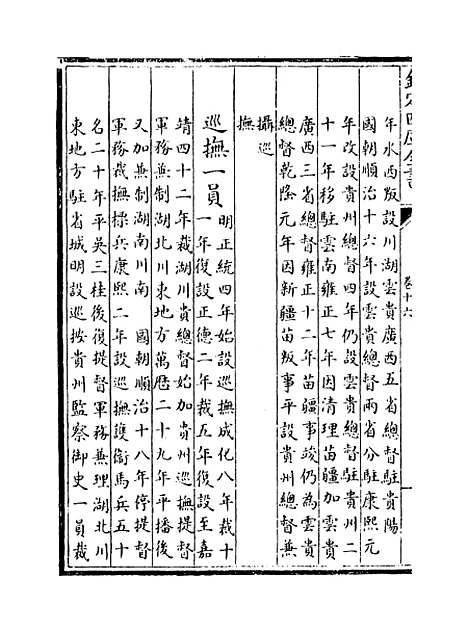 欽定四庫全書
卷十六
年水西叛設川湖雲貴廣西五省總督駐貴陽
國朝順治十六年設雲貴總督兩省分駐康熙元
年改設貴州總督四年仍設雲貴總督駐貴州二
十一年移駐雲南雍正七年因清理苗疆加雲貴
廣西三省總督雍正十二年苗疆事竣仍為雲貴
總督乾隆元年因新疆苗叛事平設貴州總督兼
攝巡
撫
巡撫一員
明正統四年始設巡撫成化八年裁十
一年復設正德二年裁五年復設至嘉
靖四十二年裁湖川貴總督始加貴州巡撫提督
軍務兼制湖北川東地方萬歷二十九年平播後
又加兼制湖南川南 國朝順治十八年停提督
軍務裁撫標兵康熙二年設巡撫護衛馬兵五十
名二十年平吳三桂後復提督軍務兼理湖北川
東地方駐省城明設巡按貴州監察御史一員裁